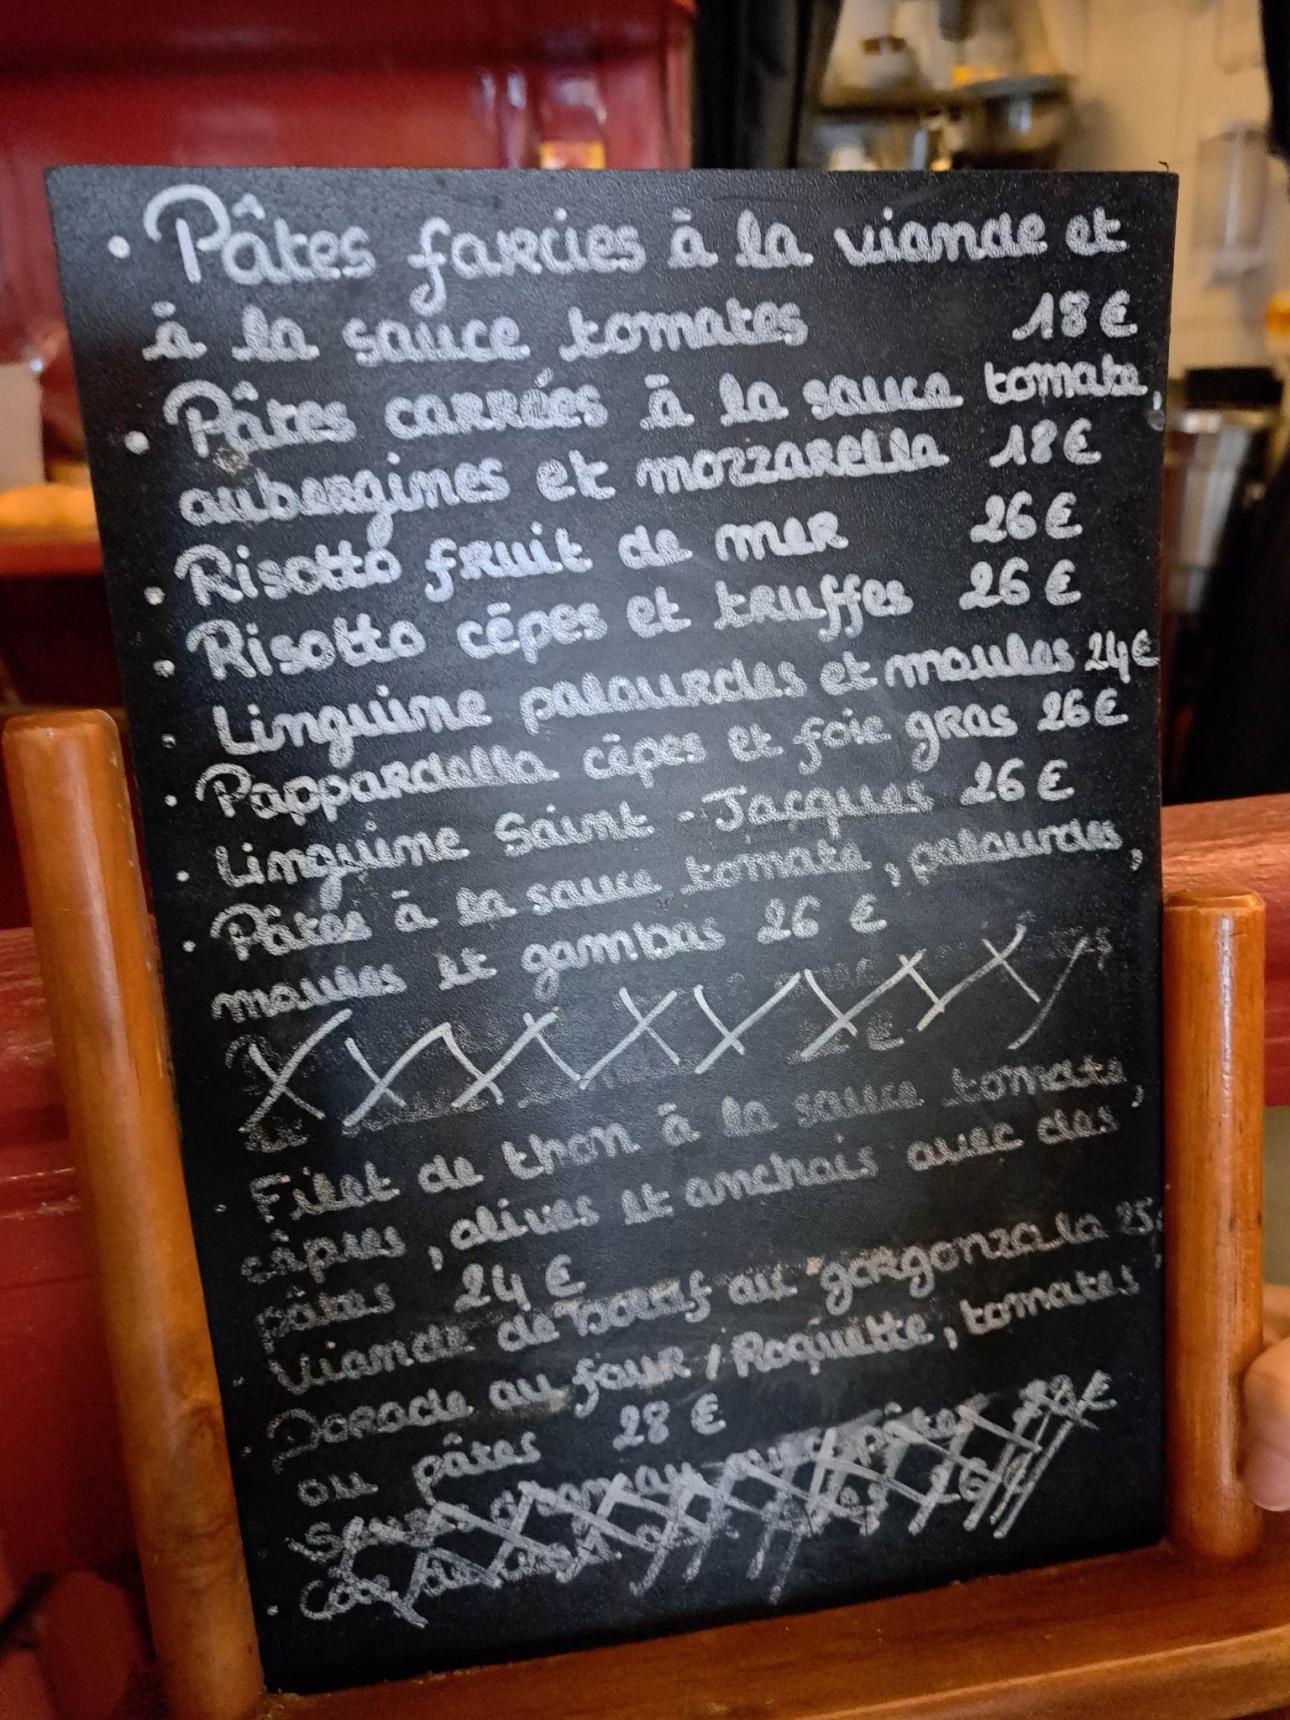 • Pâtes farcies à la viande et
à la sauce tomates 18 €
• Pâtes carrées à la sauce tomate,
aubergines et mozzarella 18 €
• Risotto fruit de mer 26 €
• Risotto cêpes et truffes 26 €
• Linguine palourdes et moules 24 €
• Pappardella cêpes et foie gras 26 €
• Linguine Saint - Jacques 26 €
• Pâtes à la sauce tomate, palourdes,
moules et gambas 26 €
• Filet de thon à la sauce tomate,
câpres, olives et anchois avec des
pâtes 24 €
• Viande de boeuf au gorgonzola 25
• Dorade au four / Roquitte, tomates
ou pâtes 28 €
pâtes
26